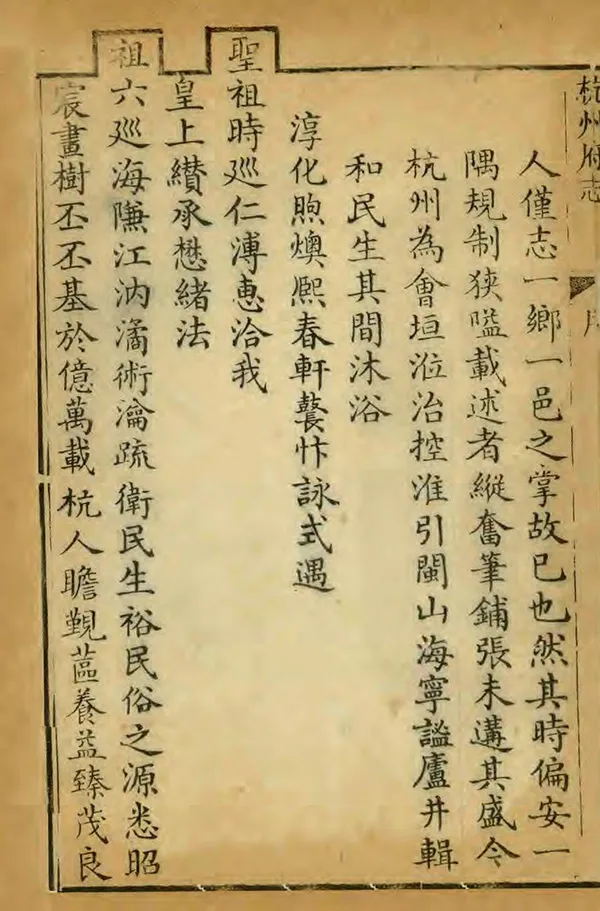 杭州府志
人僅志一鄉一邑之掌故已也然其時偏安一
隅規制狹嗌載述者縱奮筆鋪張未遘其盛今
杭州為會垣涖治控淮引閩山海寧謐廬井輯
和民生其間沐浴
淳化煦燠熙春軒鼚忭詠式遇
聖祖時巡仁溥惠洽我
皇上纘承懋緒法
祖六巡海隒江汭潏術瀹疏衛民生裕民俗之源悉昭
宸畫樹丕丕基於億萬載杭人瞻覲蓲養益臻茂良